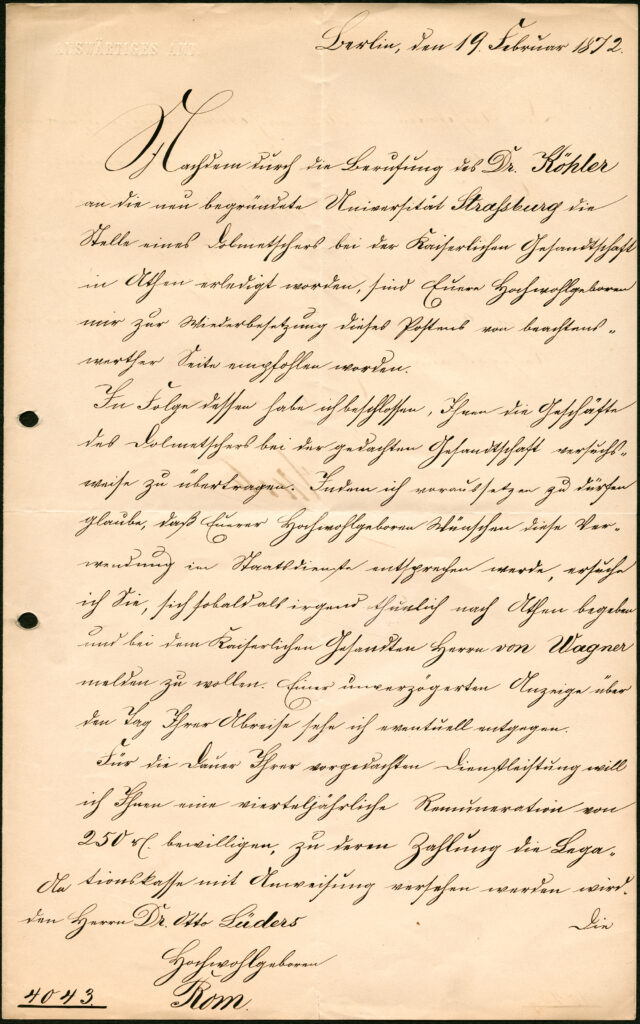 AUSWÄRTIGES AMT
Berlin, den 19. Februar 1872.
Nachdem durch die Berufung des Dr. Köhler
an die neu begründete Universität Strassburg die
Stelle eines Dolmetschers bei der Kaiserlichen Gesandtschaft
in Athen erledigt worden, sind Euere Hochwohlgeboren
mir zur Wiederbesetzung dieses Postens von beachtens-
werther Seite empfohlen worden.
In Folge dessen habe ich beschlossen, Ihnen die Geschäfte
des Dolmetschers bei der gedachten Gesandtschaft versuchs-
weise zu übertragen. Indem ich voraussetzen zu dürfen
glaube, daß Euerer Hochwohlgeboren Wünschen diese Ver-
wendung im Staatsdienste entsprechen werde, ersuche
ich Sie, sich sobald als irgend thunlich nach Athen begeben
und bei dem Kaiserlichen Gesandten Herrn von Wagner
melden zu wollen. Einer unverzögerten Anzeige über
den Tag Ihrer Abreise sehe ich eventuell entgegen.
Für die Dauer Ihrer vorgedachten Dienstleistung will
ich Ihnen eine vierteljährliche Remuneration von
250 rl. bewilligen, zu deren Zahlung die Lega-
tionskasse mit Anweisung versehen werden wird.
Die
An
den Herrn Dr. Otto Lüders
Hochwohlgeboren
Rom.
4043.